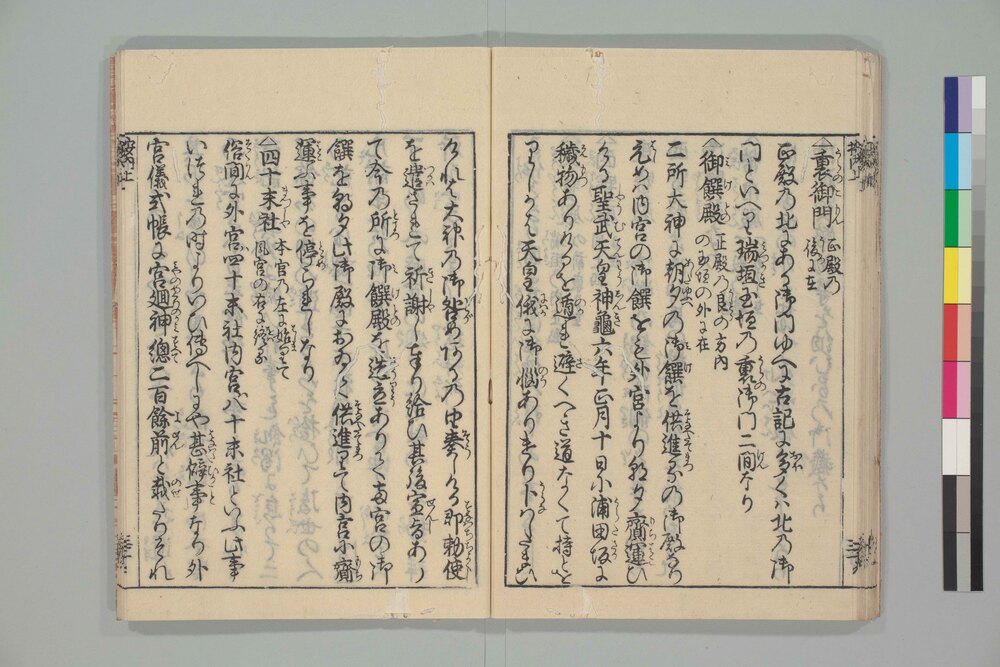 裏御門 正殿乃
後に在
正殿乃北にある御門ゆへに古記に多くハ北乃御
門といへり瑞垣玉垣乃裏御門二間なり
御饌殿 正殿乃艮の方内
の玉垣の外に在
二所大神に朝夕の御饌を供進するの御殿なり
元めハ内宮の御饌をも外宮より朝夕齎運ひ
ける聖武天皇神龜六年正月十日小浦田坂に
穢物ありけるを遁れ避くへき道なくて持とを
りしかは天皇俄に御悩ありきり卜はしたまひ
けれは大神乃御咎めあるの由奏しける即勅使
を遣されて祈謝し奉り給ひ其後宣旨あり
て今乃所に御饌殿を造立ありて両宮の御
饌を朝夕此御殿におゐて供進りて内宮に齎
運ふ事を停られしなり
四十末社 本宮乃左に始りて
風宮の右に終る
俗間に外宮四十末社内宮八十末社といふ此事
いつれ乃時よりいひ傳へしにや甚僻事なり外
宮儀式帳に宮廻神總二百餘前と載たりそれ